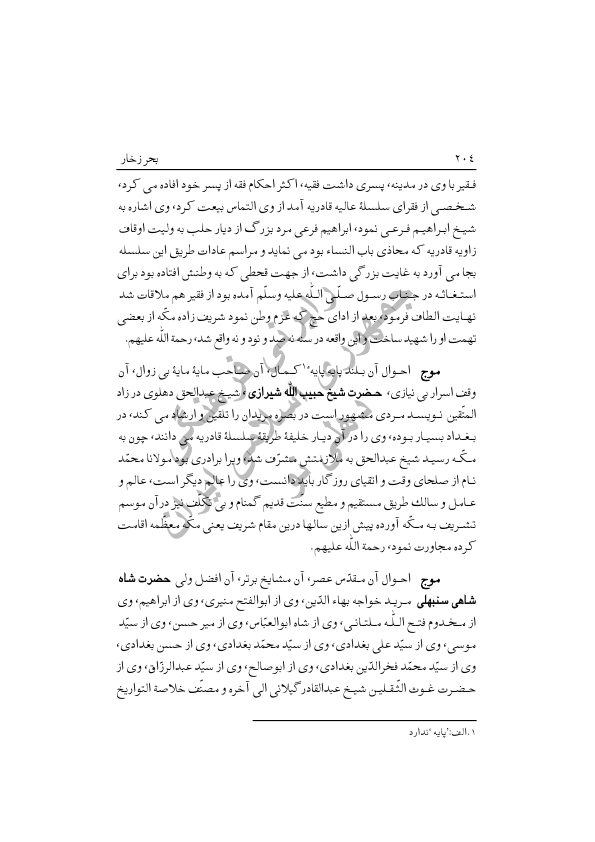 ۲۰۴ بحر زخار
فقیر با وی در مدینه، پسری داشت فقیه، اکثر احکام فقه از پسر خود افاده می کرد،
شخصی از فقرای سلسلهٔ عالیه قادریه آمد از وی التماس بیعت کرد، وی اشاره به
شیخ ابراهیم فرعی نمود، ابراهیم فرعی مرد بزرگ از دیار حلب به ولیت اوقاف
زاویه قادریه که محاذی باب النساء بود می نماید و مراسم عادات طریق این سلسله
بجا می آورد به غایت بزرگی داشت، از جهت قحطی که به وطنش افتاده بود برای
استغاثه در جناب رسول صلّی اللّه علیه وسلّم آمده بود از فقیر هم ملاقات شد
نهایت الطاف فرمود، بعد از ادای حج که عزم وطن نمود شریف زاده مکّه از بعضی
تهمت او را شهید ساخت و این واقعه در سنه نه صد و نود و نه واقع شد، رحمة اللّه علیهم.
موج احوال آن بلند پایه پایه۱ کمال، آن صاحب مایهٔ مایهٔ بی زوال، آن
وقف اسرار بی نیازی، حضرت شیخ حبیب اللّه شیرازی، شیخ عبدالحق دهلوی در زاد
المتّقین نویسد مردی مشهور است در بصره مریدان را تلقین و ارشاد می کند، در
بغداد بسیار بوده، وی را در آن دیار خلیفهٔ طریقهٔ سلسلهٔ قادریه می دانند، چون به
مکّه رسید شیخ عبدالحق به ملازمتش مشرّف شد، ویرا برادری بود مولانا محمّد
نام از صلحای وقت و اتقیای روزگار باید دانست، وی را عالم دیگر است، عالم و
عامل و سالك طریق مستقیم و مطیع سنّت قدیم گمنام و بی تکلّف نیز درآن موسم
تشریف به مکّه آورده پیش ازین سالها درین مقام شریف یعنی مکّه معظّمه اقامت
کرده مجاورت نمود، رحمة اللّه علیهم.
موج احوال آن مقدّس عصر، آن مشایخ برتر، آن افضل ولی حضرت شاه
شاهی سنبهلی مرید خواجه بهاء الدّین، وی از ابوالفتح منیری، وی از ابراهیم، وی
از مخدوم فتح اللّه ملتانی، وی از شاه ابوالعبّاس، وی از میر حسن، وی از سیّد
موسی، وی از سیّد علی بغدادی، وی از سیّد محمّد بغدادی، وی از حسن بغدادی،
وی از سیّد محمّد فخرالدّین بغدادی، وی از ابوصالح، وی از سیّد عبدالرزّاق، وی از
حضرت غوث الثّقلین شیخ عبدالقادر گیلانی الی آخره و مصنّف خلاصة التواریخ
۱. الف: ‘پایه’ ندارد
رایزنی فرهنگی
جمهوری اسلامی ایران
دهلی نو